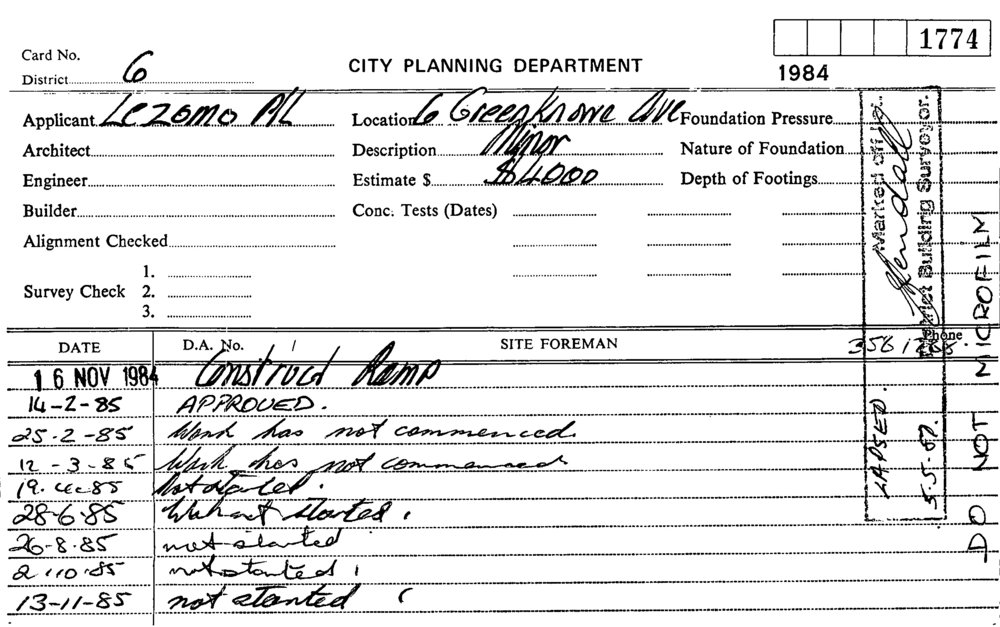 1774
1984
Card No.
District 6
CITY PLANNING DEPARTMENT
Applicant Lezomo P/L
Location 6 Greenknowe Ave
Foundation Pressure
Architect
Description Minor
Nature of Foundation
Engineer
Estimate $ $4000
Depth of Footings
Builder
Conc. Tests (Dates)
Alignment Checked
1.
Survey Check 2.
3.
DATE D.A. No. / SITE FOREMAN Phone
16 NOV 1984 Construct Ramp
14-2-85 APPROVED.
25.2-85 Work has not commenced.
12-3-85 Work has not commenced
19.4.85 Not started.
28-6-85 Work not started.
26-8-85 not started
2.10.85 not started
13-11-85 not started
Marked off by
District Building Surveyor.
LAPSED.
5.5.87.
DO NOT MICROFILM